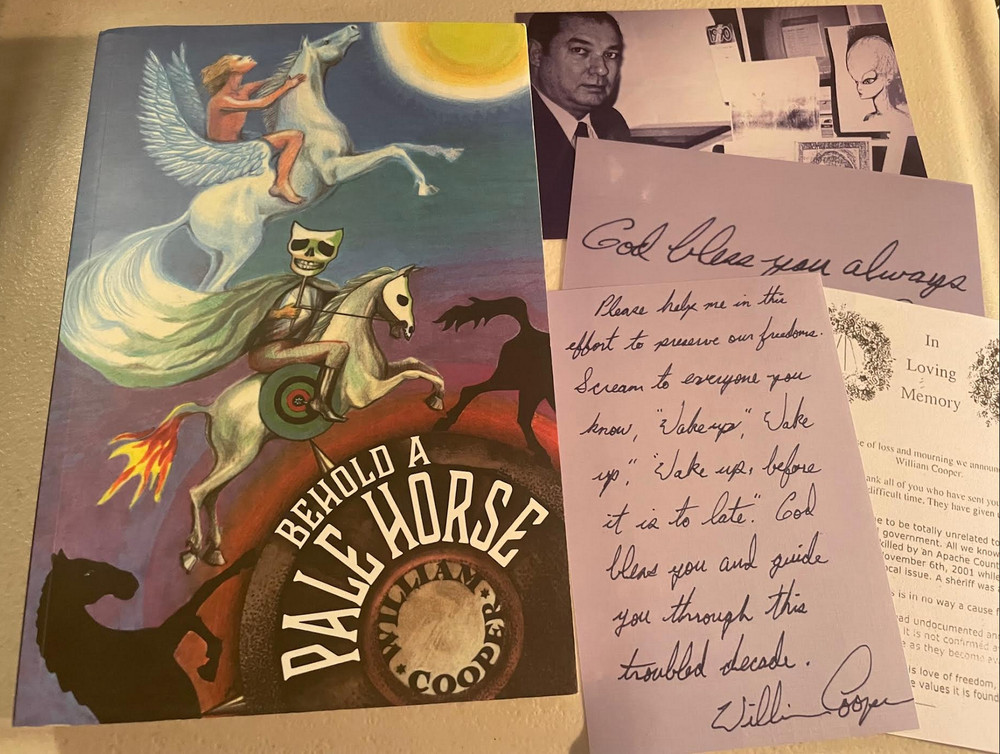 BEHOLD A
PALE HORSE
WILLIAM
COOPER
God bless you always
Please help me in this
effort to preserve our freedoms.
Scream to everyone you
know, "Wake up", "Wake
up," "Wake up, before
it is to late." God
bless you and guide
you through this
troubled decade.
William Cooper
In
Loving
Memory
of loss and mourning we
William Cooper.
all of you who have sent
difficult time. They have given
to be totally unrelated to
government. All we know
killed by an Apache
6th, 2001
issue. A sheriff was
is in no way a cause
undocumented
it is not confirmed
as they become
love of freedom,
values it is found